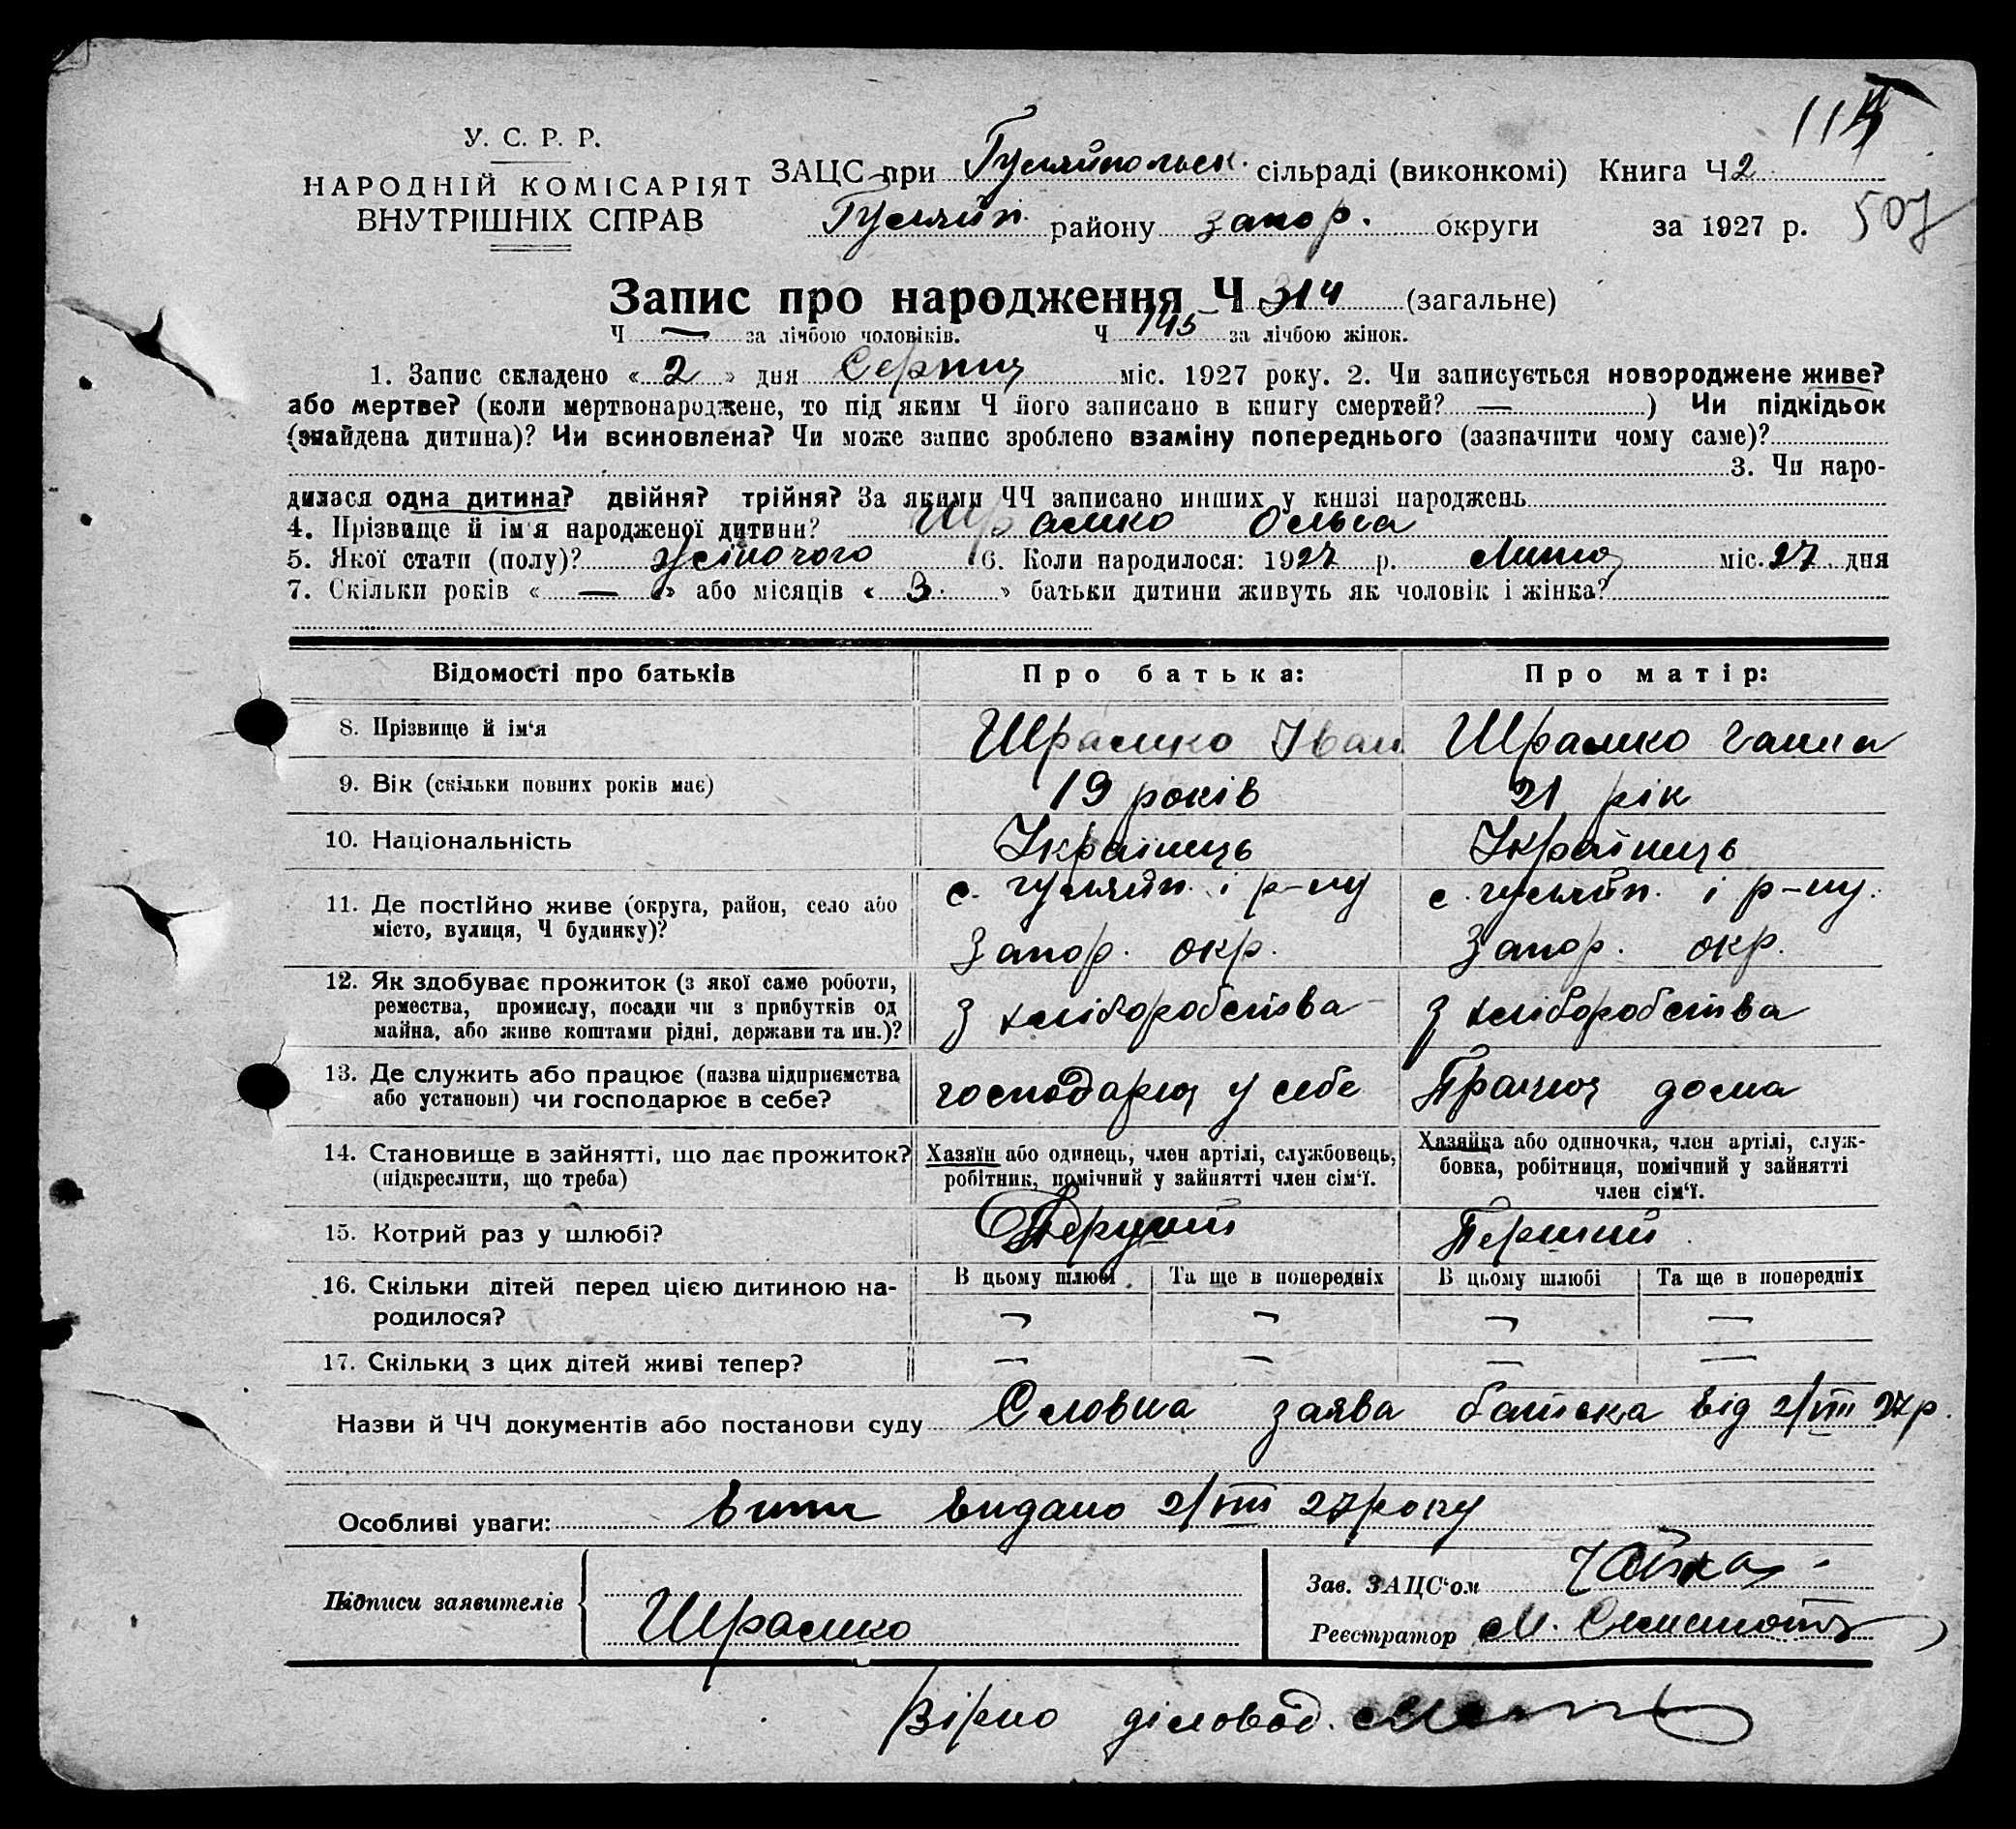 115
У. С. Р. Р.
НАРОДНІЙ КОМІСАРІЯТ
ВНУТРІШНІХ СПРАВ
ЗАЦС при Гуляйпольск. сільраді (виконкомі) Книга Ч 2
Гуляйп. району Запор. округи за 1927 р. 507
Запис про народження Ч 314 (загальне)
Ч — за лічбою чоловіків. Ч 145 за лічбою жінок.
1. Запис складено «2» дня Серпня міс. 1927 року. 2. Чи записується новороджене живе?
або мертве? (коли мертвонароджене, то під яким Ч його записано в книгу смертей? —) Чи підкідьок
(знайдена дитина)? Чи всиновлена? Чи може запис зроблено взаміну попереднього (зазначити чому саме)?
3. Чи наро-
дилася одна дитина? двійня? трійня? За якими ЧЧ записано инших у книзі народжень
4. Прізвище й ім'я народженої дитини? Шрамко Ольга
5. Якої стати (полу)? жіночого 6. Коли народилося: 1927 р. Липня міс. 27 дня
7. Скільки років «—» або місяців «3» батьки дитини живуть як чоловік і жінка?
Відомості про батьків Про батька: Про матір:
8. Прізвище й ім'я Шрамко Іван Шрамко Ганна
9. Вік (скільки повних років має) 19 років 21 рік
10. Національність Українець Українець
11. Де постійно живе (округа, район, село або с. Гуляйп. і р-ну с. Гуляйп. і р-ну.
місто, вулиця, Ч будинку)? Запор. окр. Запор. окр.
12. Як здобуває прожиток (з якої саме роботи,
ремества, промислу, посади чи з прибутків од З хліборобства З хліборобства
майна, або живе коштами рідні, держави та ин.)?
13. Де служить або працює (назва підприємства господарює у себе Працює дома
або установи) чи господарює в себе?
14. Становище в зайнятті, що дає прожиток? Хазяїн або одинець, член артілі, службовець, Хазяйка або одиночка, член артілі, служ-
(підкреслити, що треба) робітник, помічний у зайнятті член сім'ї. бовка, робітниця, помічний у зайнятті
член сім'ї.
15. Котрий раз у шлюбі? Перший
16. Скільки дітей перед цією дитиною на- В цьому шлюбі Та ще в попередніх В цьому шлюбі Та ще в попередніх
родилося? — — — —
17. Скільки з цих дітей живі тепер? — — — —
Назви й ЧЧ документів або постанови суду Словна заява батька від 2/VIII 27р.
Особливі уваги: видано 2/VIII 27 року
Підписи заявителів Шрамко
Зав. ЗАЦС'ом Чайка
Реєстратор М.
Вірно діловод.